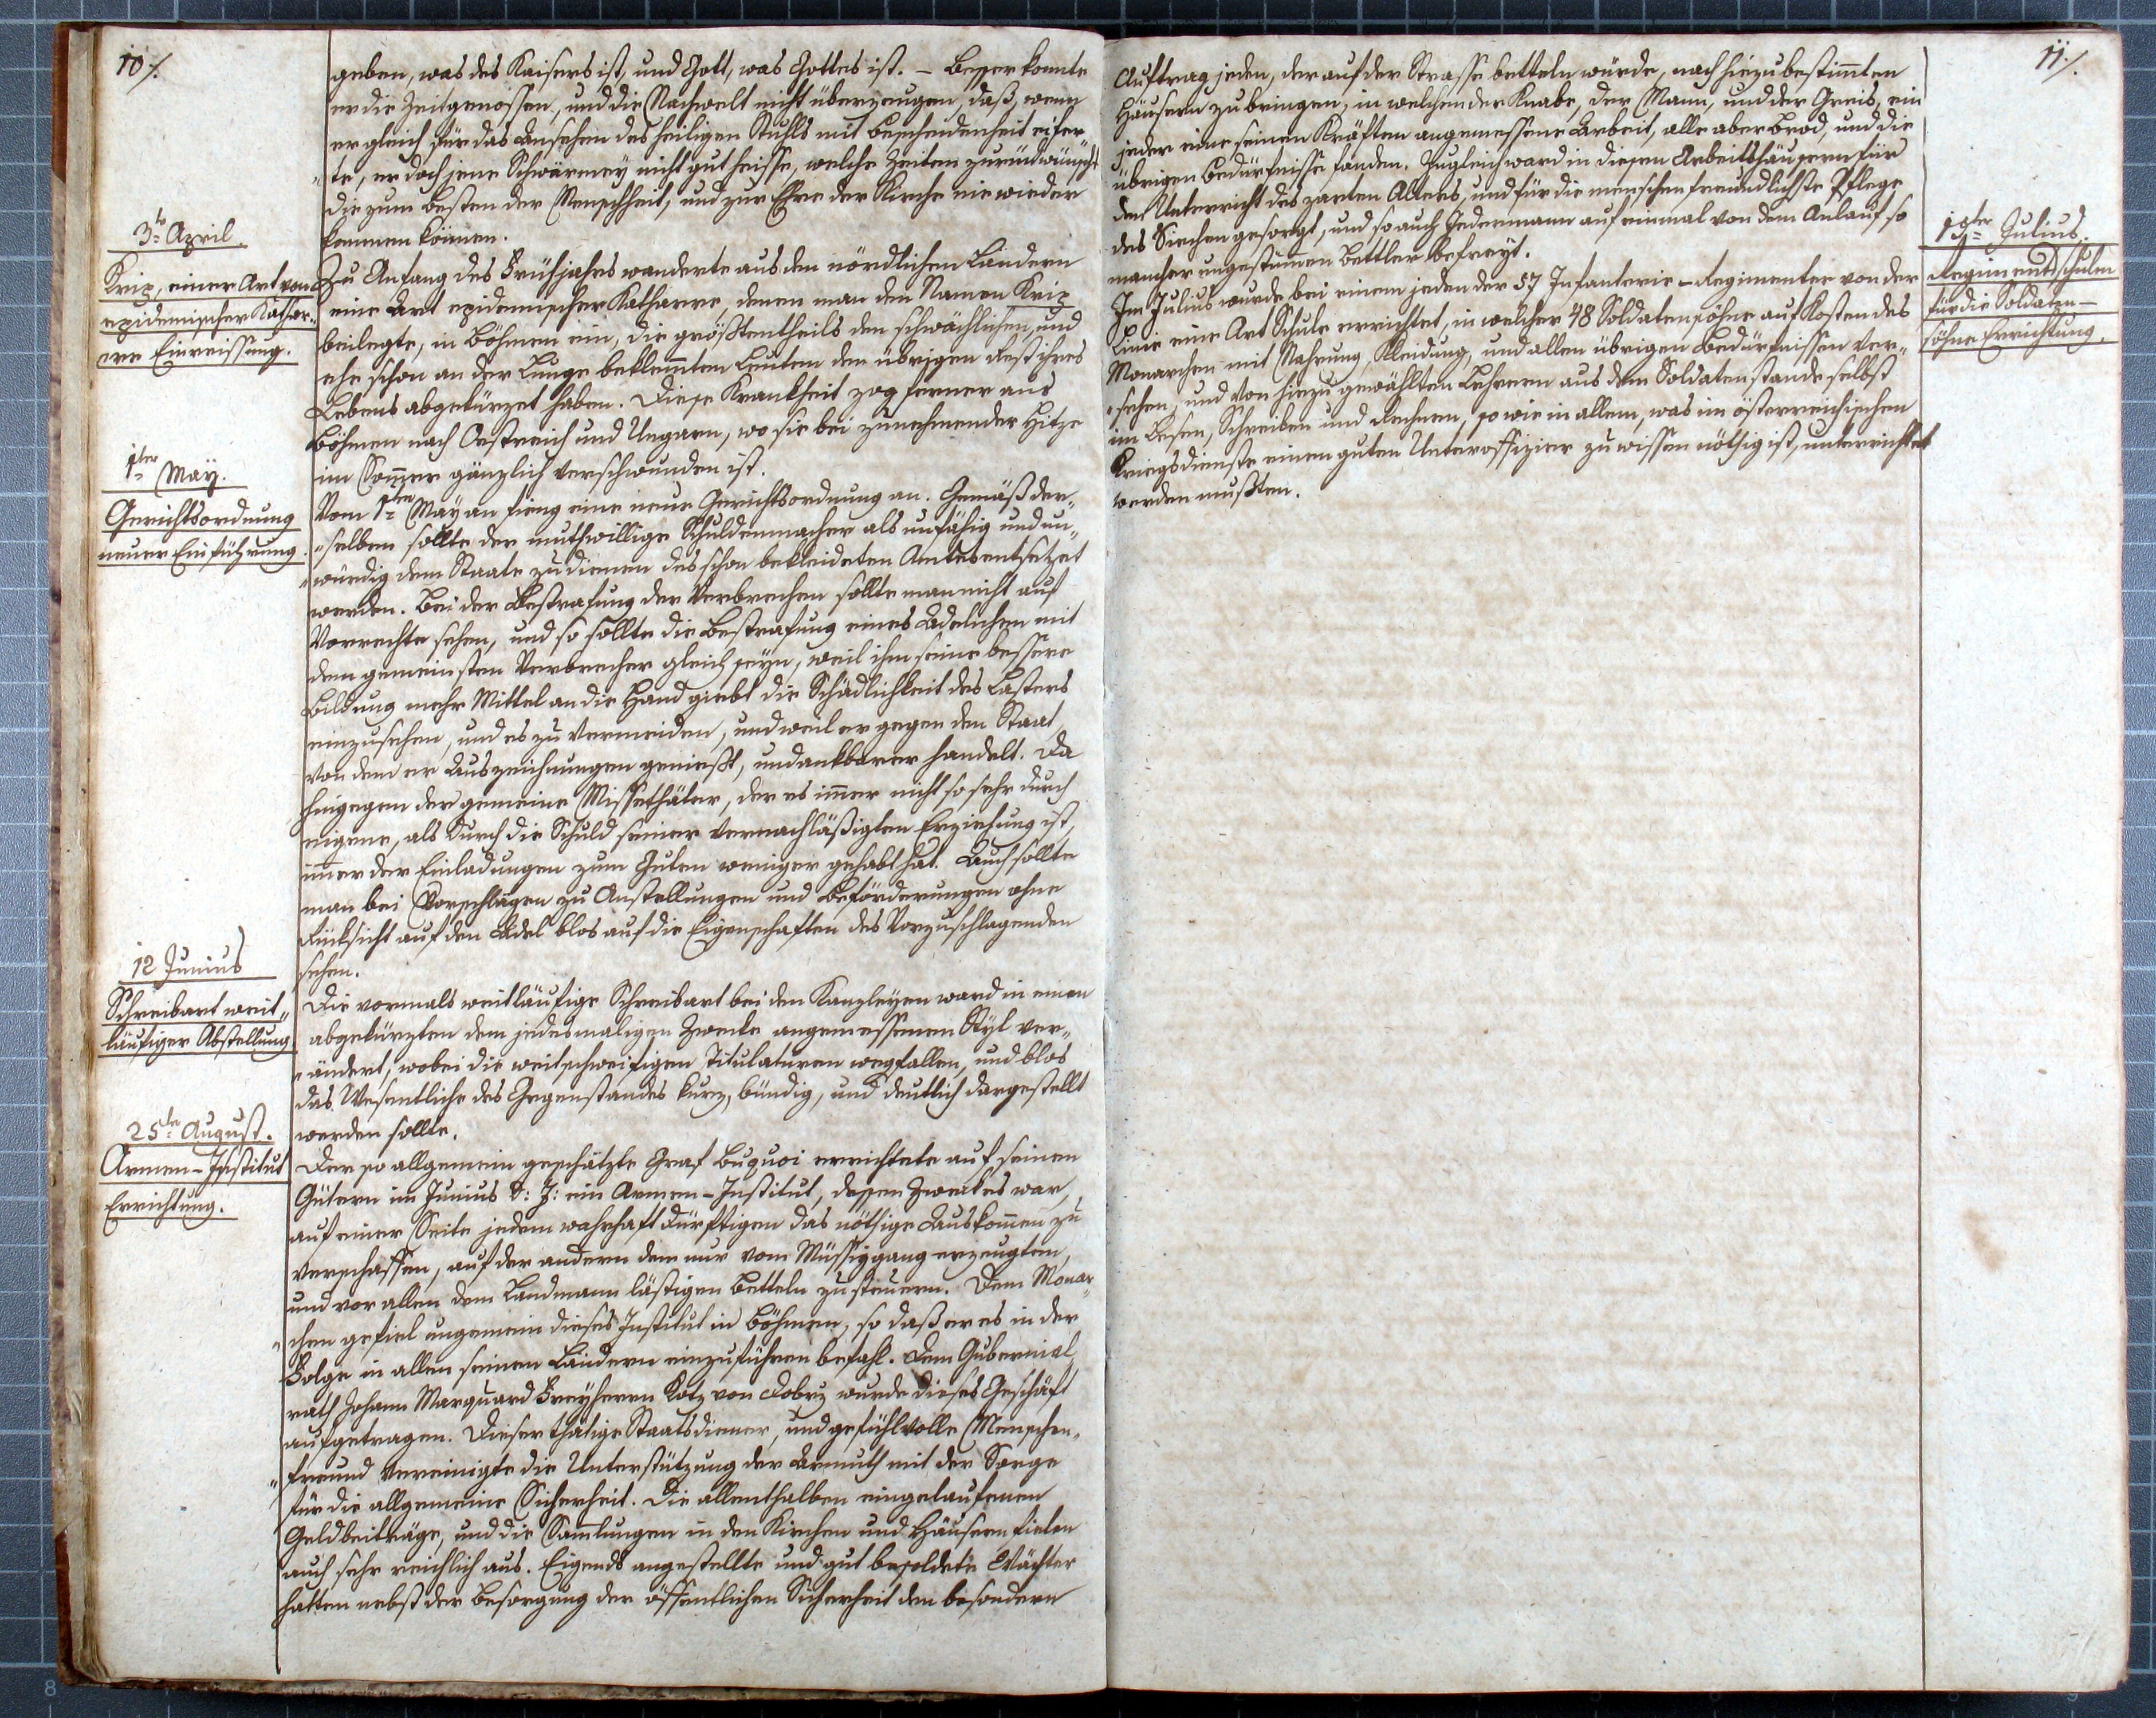 10 /.
geben, was des Kaisers ist, und Gott, was Gottes ist. – Besser konnte
er die Zeitgenossen, und die Nachwelt nicht überzeugen, daß, wenn
er gleich für das Ansehen des heiligen Stuhls mit Bescheidenheit eifer„
„te, er doch jene Schwärmey nicht gut heisse, welche Zeiten zurückwünscht
die zum Besten der Menschheit, und zur Ehre der Kirche nie wieder
kommen können.
3te April.
Krip, einer Art von
epidemischer Kathar„
rre Einreissung.
Zu Anfang des Frühjahrs wanderte aus den nördlichen Ländern
eine Art epidemischer Katharre, denen man den Namen Krip
beilegte, in Böhmen ein, die größtentheils den schwächlichen, und
ehe schon an der Lunge beklemmten Leuten den übrigen Rest ihres
Lebens abgekürzet haben. Diese Krankheit zog ferner aus
Böhmen nach Oestreich und Ungarn, wo sie bei zunehmender Hitze
im Sommer gänzlich verschwunden ist.
1ter May.
Gerichtsordnung
neuer Einführung.
Vom 1ten May an fieng eine neue Gerichtsordnung an. Gemäß der„
„selben sollte der muthwillige Schuldenmacher als unfähig und un„
„würdig dem Staate zu dienen des schon bekleideten Amtes entsetzet
werden. Bei der Bestrafung der Verbrechen sollte man nicht auf
Vorrechte sehen, und so sollte die Bestrafung eines Adelichen mit
dem gemeinsten Verbrecher gleich seyn, weil ihm seine bessere
Bildung mehr Mittel an die Hand giebt die Schädlichkeit des Lasters
einzusehen, und es zu vermeiden, und weil er gegen den Staat
von dem er Auszeichnungen genießt, undankbarer handelt. Da
hingegen der gemeine Missethäter, der es immer nicht so sehr durch
eigene, als durch die Schuld seiner vernachläßigten Erziehung ist,
immer der Einladungen zum Guten weniger gehabt hat. Auch sollte
man bei Vorschlägen zu Anstellungen und Beförderungen ohne
Rücksicht auf den Adel blos auf die Eigenschaften des Vorzuschlagenden
sehen.
12 Junius
Schreibart weit„
läufiger Abstellung
Die vormals weitläufige Schreibart bei den Kanzleyen ward in einen
abgekürzten dem jedesmaligen Zwecke angemessenen Styl ver„
„ändert, wobei die weitschweifigen Titulaturen wegfallen, und blos
das Wesentliche des Gegenstandes kurz, bündig, und deutlich dargestellt
werden sollte.
25te August.
Armen-Institut
Errichtung.
Der so allgemein geschätzte Graf Buquoi errichtete auf seinen
Gütern im Junius d: J: ein Armen-Institut, dessen Zweck es war,
auf einer Seite jedem wahrhaft dürftigen das nöthige Auskommen zu
verschaffen, auf der andern dem nur vom Müssiggang erzeugten,
und vor allen dem Landmann lästigen Betteln zu steuern. Dem Monar„
„chen gefiel ungemein dieses Institut in Böhmen, so daß er es in der
Folge in allen seinen Ländern einzuführen befahl. Dem Gubernial
rath Johann Marquard Freyherrn Kotz von Dobrz wurde dieses Geschäft
aufgetragen. Dieser thätige Staatsdiener, und gefühlvolle Menschen„
„freund vereinigte die Unterstützung der Armuth mit der Sorge
für die allgemeine Sicherheit. Die allenthalben eingelaufenen
Geldbeiträge, und die Sammlungen in den Kirchen und Häusern fielen
auch sehr reichlich aus. Eigends angestellte und gut besoldete Wächter
hatten nebst der Besorgung der öffentlichen Sicherheit den besondern
11 /.
Auftrag jeden, der auf der Strasse betteln würde, nach hiezu bestimmten
Häusern zu bringen, in welchen der Knabe, der Mann, und der Greis, ein
jeder eine seinen Kräften angemessene Arbeit, alle aber Brod, und die
übrigen Bedürfnisse fanden. Zugleich ward in diesen Arbeitshäusern für
den Unterricht des zarten Alters, und für die menschenfreundlichste Pflege
des Siechen gesorgt, und so auch Jedermann auf einmal von dem Anlauf so
mancher ungestümen Bettler befreyt.
1ster Julius.
Regimentsschulen
für die Soldaten–
söhne Errichtung.
Im Julius wurde bei einem jeden der 57 Infanterie-Regimenter von der
Linie eine Art Schule errichtet, in welcher 48 Soldatensöhne auf Kosten des
Monarchen mit Nahrung, Kleidung, und allen übrigen Bedürfnissen ver„
„sehen, und von hiezu gewählten Lehrern aus dem Soldatenstande selbst
im Lesen, Schreiben und Rechnen, so wie in allem, was im österreichischen
Kriegsdienste einem guten Unteroffizier zu wissen nöthig ist, unterrichtet
werden mußten.